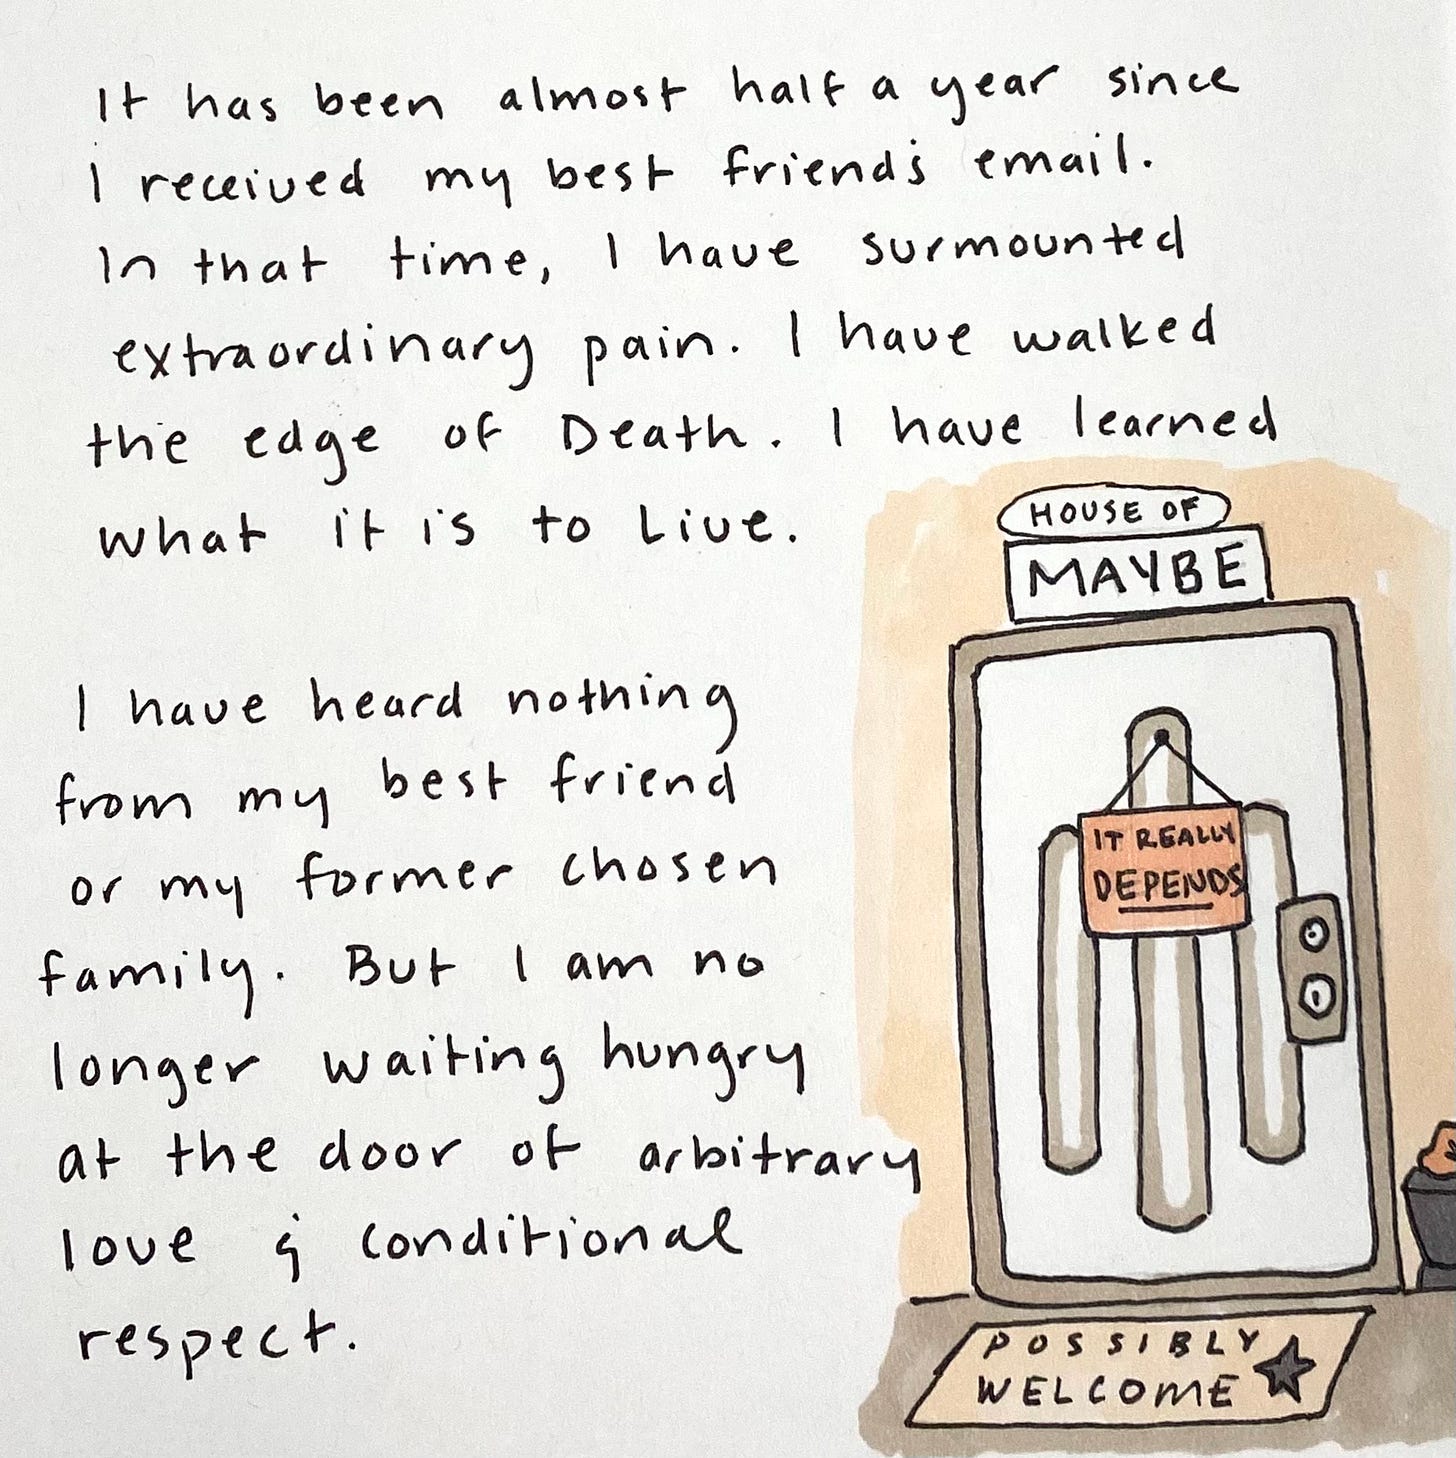 It has been almost half a year since
I received my best friend's email.
In that time, I have surmounted
extraordinary pain. I have walked
the edge of Death. I have learned
what it is to Live.
HOUSE OF
MAYBE
I have heard nothing
from my best friend
or my former chosen
family. But I am no
longer waiting hungry
at the door of arbitrary
love & conditional
respect.
IT REALLY
DEPENDS
POSSIBLY
WELCOME